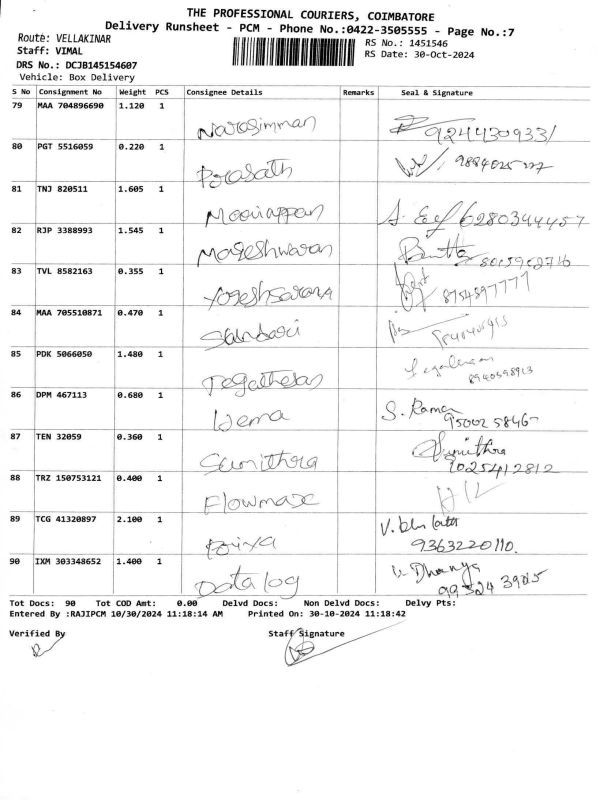 THE PROFESSIONAL COURIERS, COIMBATORE
Delivery Runsheet - PCM - Phone No.:0422-3505555 - Page No.:7
Route: VELLAKINAR
RS No.: 1451546
Staff: VIMAL
RS Date: 30-Oct-2024
DRS No.: DCJB145154607
Vehicle: Box Delivery
S No Consignment No Weight PCS Consignee Details Remarks Seal & Signature
79 MAA 704896690 1.120 1 Narasimman
80 PGT 5516059 0.220 1 Prasath
81 TNJ 820511 1.605 1 6280344457
82 RJP 3388993 1.545 1 Mageshwaran
83 TVL 8582163 0.355 1 Yogeshsarana 8754897777
84 MAA 705510871 0.470 1
85 PDK 5066050 1.480 1 Jegathesan 8940598913
86 DPM 467113 0.680 1 Hema S. Raman
95002 58465
87 TEN 32059 0.360 1 Sumithra Sumithra
9025412812
88 TRZ 150753121 0.400 1 Flowmax
89 TCG 41320897 2.100 1 Priya
9363220110.
90 IXM 303348652 1.400 1 Datalog Dhanya
99524 39015
Tot Docs: 90 Tot COD Amt: 0.00 Delvd Docs: Non Delvd Docs: Delvy Pts:
Entered By :RAJIPCM 10/30/2024 11:18:14 AM Printed On: 30-10-2024 11:18:42
Verified By Staff Signature